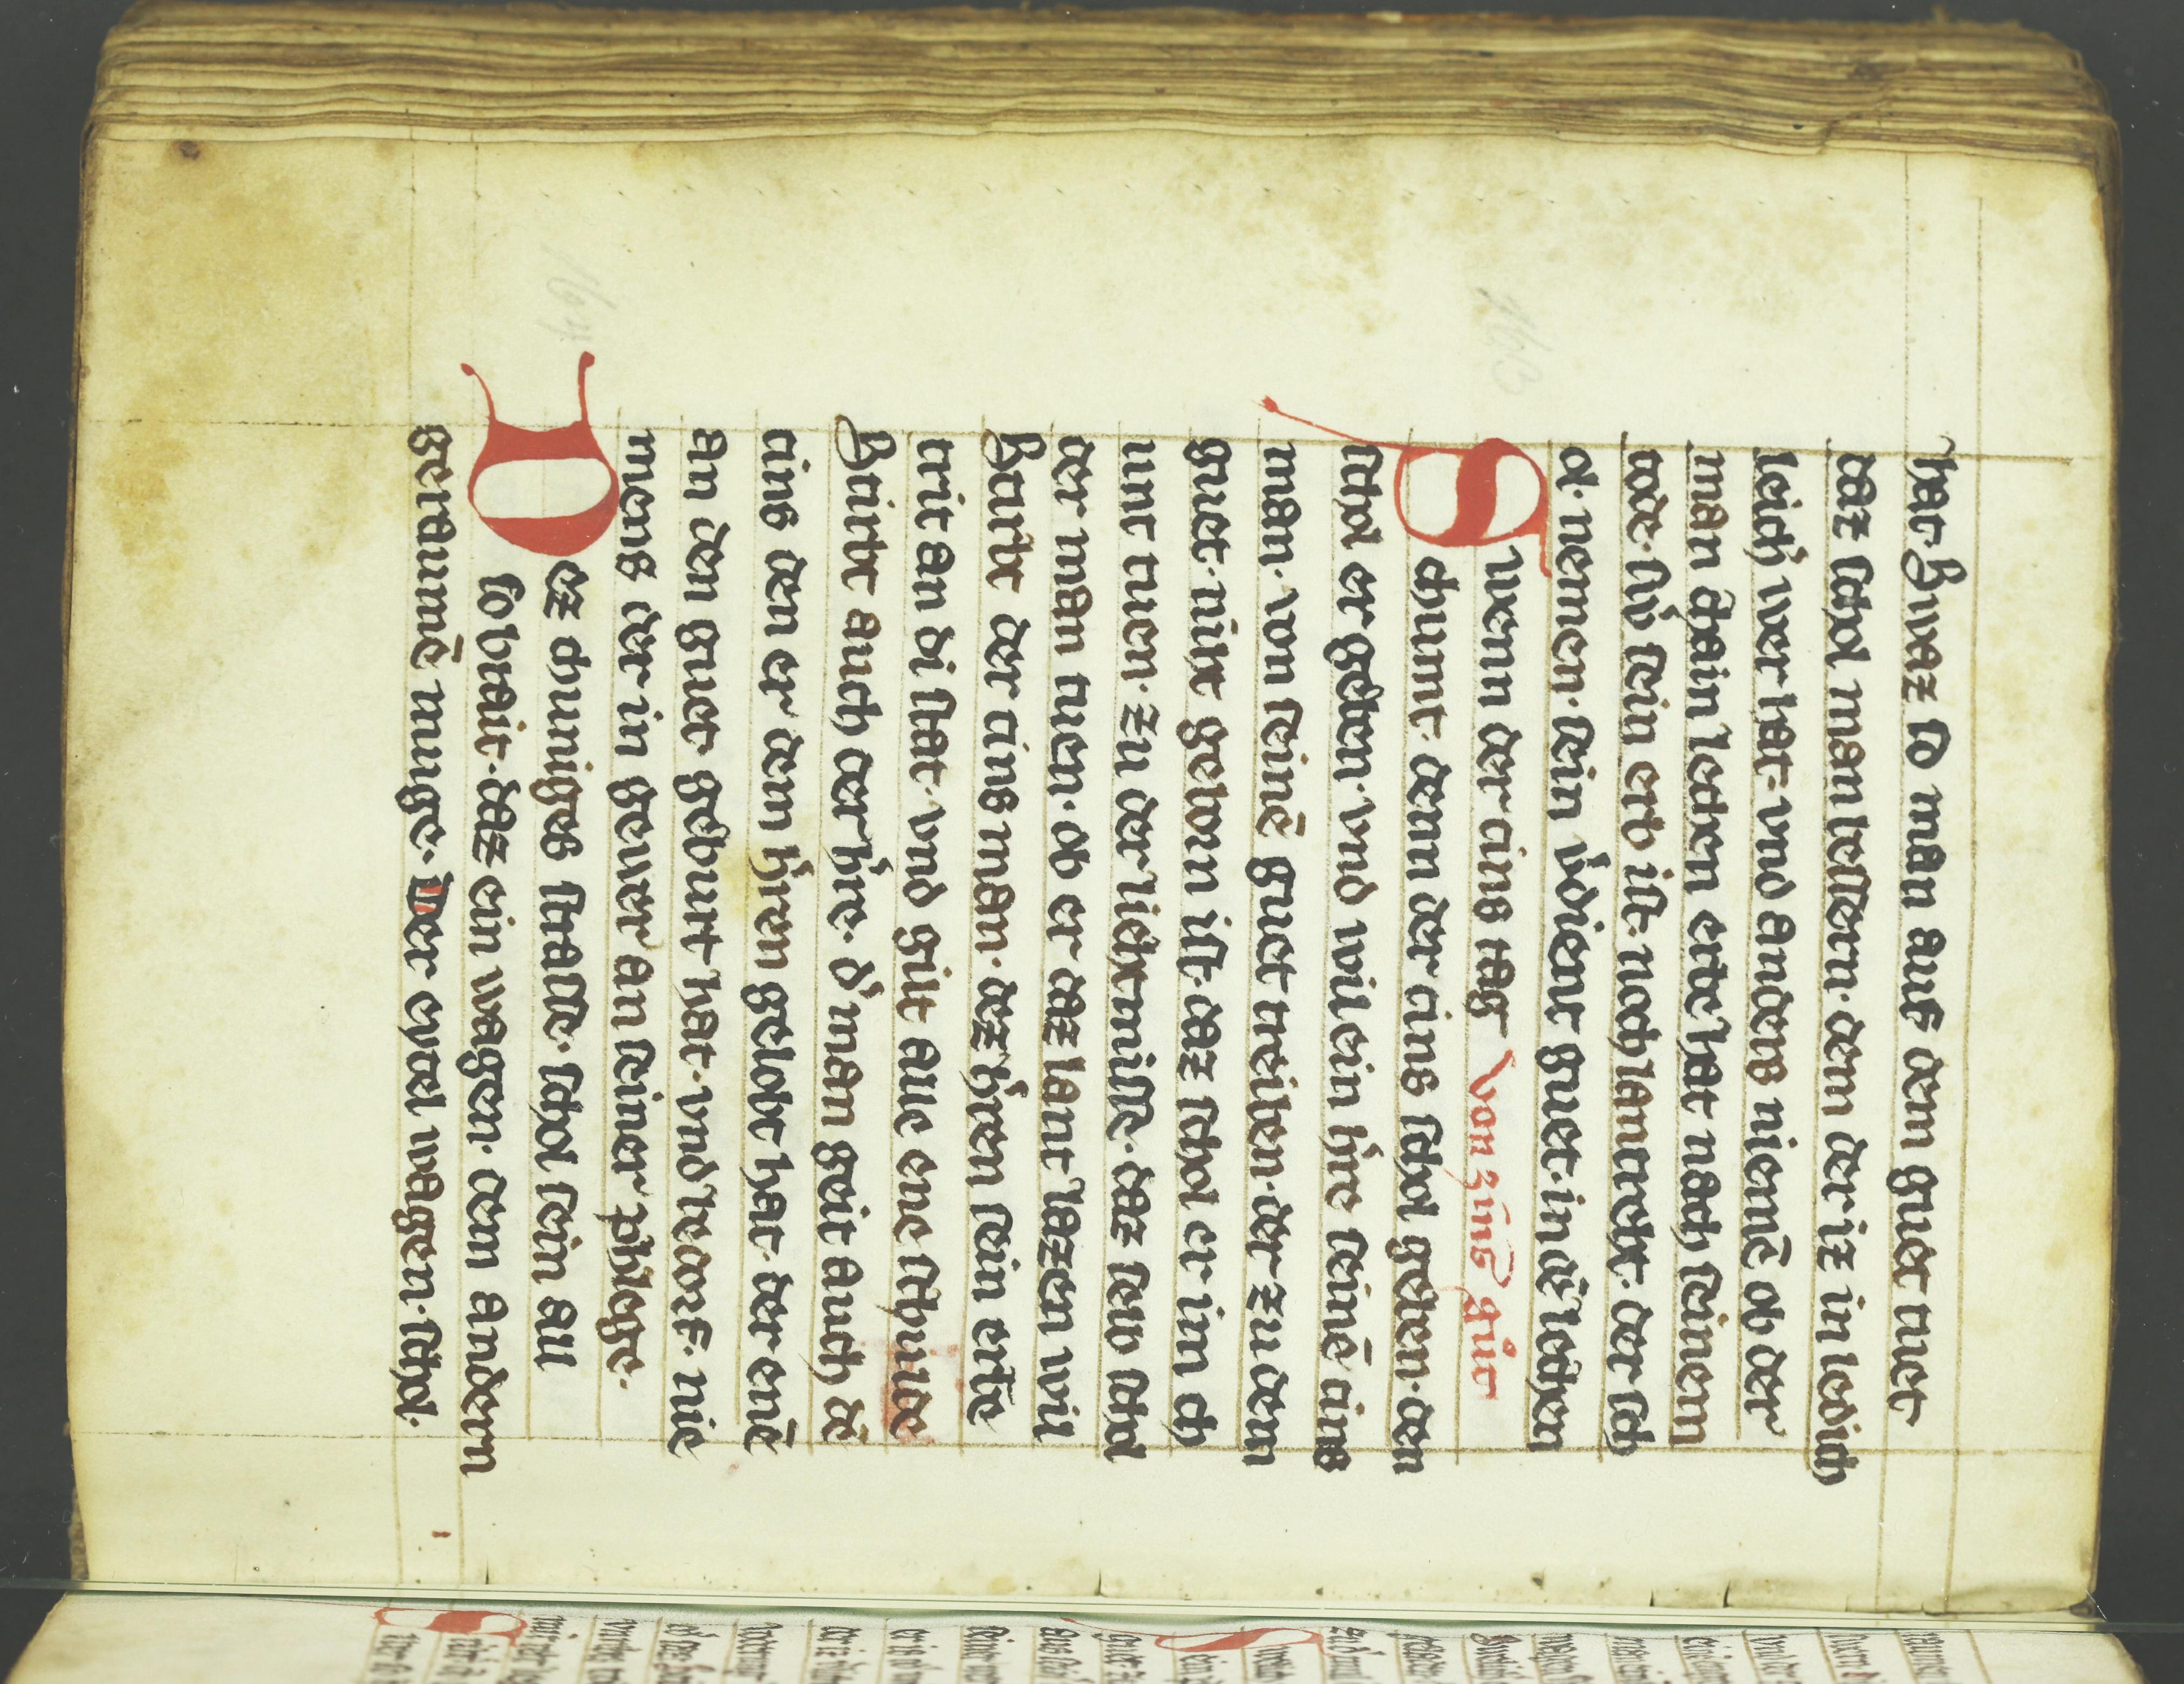 hat. Swaz so man auf dem guet tuet
daz schol man lestern. dem der iz in ledich
leich wer hat. vnd anders niemē ob der
man chein lechen erbe hat nach seinem
tode. swˢ sein erb ist. nach lantreht. der sch
ol nemen. sein vˢdient guet. in dē lechen
Swenn der zins tag Von zinˢ gůt
chumt. dem der zins schol geben. den
schol er geben. vnd wil ein hˢre seinē zins
man. von seinē guet treiben. der zu dem
guet. niht geborn ist. daz schol er im ch
unt tuen. zu der liehtmisse. daz selb schol
der man tuen. ob er daz lant lazen wil
Stirbt der zins man. dez hˢren sein erbe
trit an di stat. vnd gilt alle ene schulde
Stirbt auch der hˢre. dˢ man geit auch dē
zins den er dem hˢren gelobt hat. der enē
an den guet geburt hat. vnd bedorf. nie
mens der in gewer an seiner phlege.
Dez chuniges strasse. schol sein al
so brait. daz ein wagen. dem andern
geraumē muge. Der eytel wagen. schol.
163
164